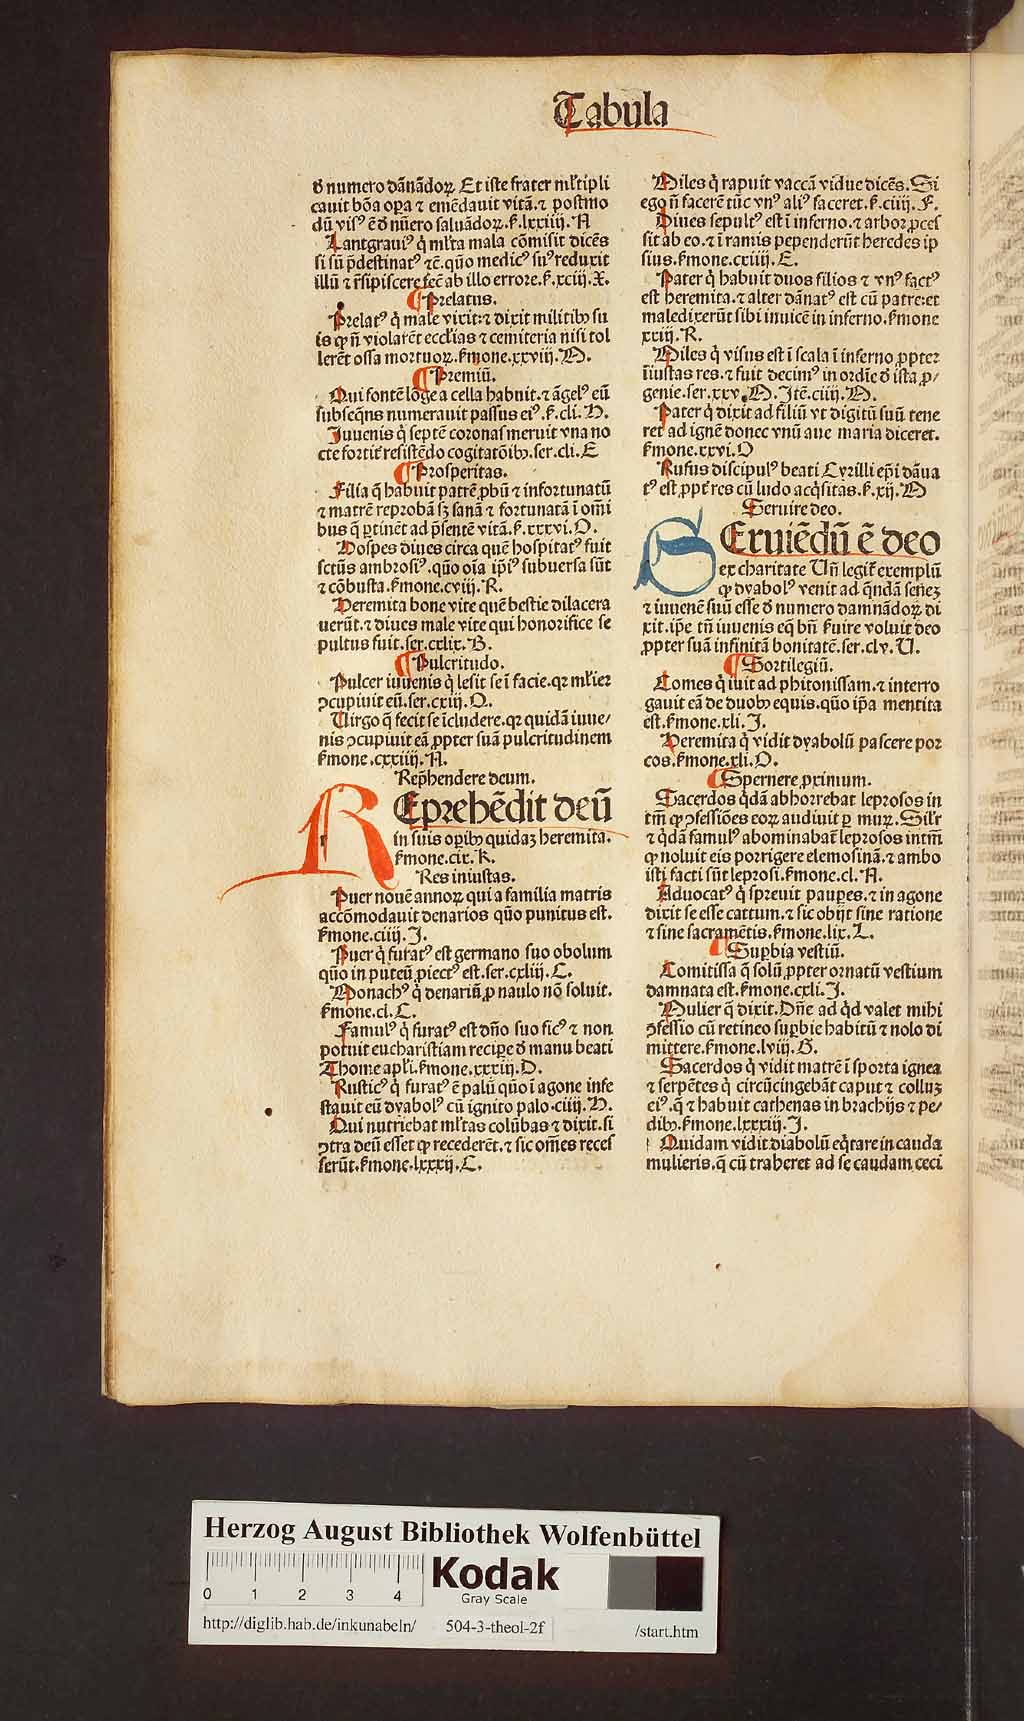 Tabula
ꝺ numero dãnãdoꝝ. Et iste frater mĺtipli
cauit bõa oꝑa ⁊ emẽdauit vitã. ⁊ postmo
dũ visꝰ ẽ ꝺ nũero saluãdoꝝ. ẜ. lxxiiij. A
Lantgrauiꝰ q̇ mĺta mala cõmisit dicẽs
si sũ p̃destinatꝰ ⁊c̃. quõ medicꝰ suꝰ reduxit
illũ ⁊ r̃sipiscere fec̃ ab illo errore. ẜ. xciij. X.
¶ Prelatus.
Prelatꝰ q̇ male vixit: ⁊ dixit militibꝰ su
is ꝙ nõ violarẽt eccĺias ⁊ cemiteria nisi tol
lerẽt ossa mortuoꝝ. ẜmone. xxviij. M.
¶ Premiũ.
Qui fontẽ lõge a cella habuit. ⁊ ãgelꝰ eũ
subseq̃ns numerauit passus eiꝰ. ẜ. cli. H.
Iuuenis q̇ septẽ coronas meruit vna no
cte fortit̃ resistẽdo cogitatõibꝰ. ser. cli. E
¶ Prosperitas.
Filia q̃ habuit patrẽ ꝓbũ ⁊ infortunatũ
⁊ matrẽ reprobã sꝫ sanã ⁊ fortunatã ĩ om̃i
bus q̃ ꝑtinẽt ad p̃sentẽ vitã. ẜ. cxxvi. O.
Hospes diues circa quẽ hospitatꝰ fuit
sctũs ambrosiꝰ. quõ oĩa ip̃iꝰ subuersa sũt
⁊ cõbusta. ẜmone. cviij. R.
Heremita bone vite quẽ bestie dilacera
uerũt. ⁊ diues male vite qui honorifice se
pultus fuit. ser. cxlix. B.
¶ Pulcritudo.
Pulcer iuuenis q̇ lesit se ĩ facie. qꝛ mĺier
ↄcupiuit eũ. ser. cxiij. O.
Uirgo q̃ fecit se ĩcludere. qꝛ quidã iuue/
nis ↄcupiuit eã ꝓpter suã pulcritudinem
ẜmone. cxxiiij. A.
Rep̃hendere deum.
REprehẽdit deũ
in suis oꝑibꝰ quidaꝫ heremita.
ẜmone. cix. K.
Res iniustas.
Puer nouẽ annoꝝ qui a familia matris
accõmodauit denarios quõ punitus est.
ẜmone. ciiij. I.
Puer q̇ furatꝰ est germano suo obolum
quõ in puteũ ꝓiectꝰ est. ser. cxliij. C.
Monachꝰ q̇ denariũ ꝓ naulo nõ soluit.
ẜmone. cl. C.
Famulꝰ q̇ furatꝰ est dño suo ficꝰ ⁊ non
potuit eucharistiam reciꝑe ꝺ manu beati
Thome apĺi. ẜmone. xxxiij. D.
Rusticꝰ q̇ furatꝰ ẽ palũ quõ ĩ agone infe
stauit eũ dyabolꝰ cũ ignito palo. ciiij. H.
Qui nutriebat mĺtas colũbas ⁊ dixit. si
ↄtra deũ esset ꝙ recederẽt. ⁊ sic om̃es reces
serũt. ẜmone. lxxxij. C.
Miles q̇ rapuit vaccã vidue dicẽs. Si
ego ñ facerẽ tũc vnꝰ aliꝰ faceret. ẜ. ciiij. F.
Diues sepultꝰ est ĩ inferno. ⁊ arbor ꝓces
sit ab eo. ⁊ ĩ ramis pependerũt heredes ip
sius. ẜmone. cxiiij. E.
Pater q̇ habuit duos filios ⁊ vnꝰ factꝰ
est heremita. ⁊ alter dãnatꝰ est cũ patre: et
maledixerũt sibi inuicẽ in inferno. ẜmone
xxiij. R.
Miles q̇ visus est ĩ scala ĩ inferno ꝓpter
ĩiustas res. ⁊ fuit decimꝰ in ordĩe ꝺ ista ꝓ/
genie. ser. xxv. M. Itẽ. ciiij. M.
Pater q̇ dixit ad filiũ vt digitũ suũ tene
ret ad ignẽ donec vnũ aue maria diceret.
ẜmone. xxvi. O
Rufus discipulꝰ beati Cyrilli ep̃i dãna
tꝰ est ꝓpt̃ res cũ ludo acq̇sitas. ẜ. xij. M
Seruire deo.
SEruiẽdũ ẽ deo
ex charitate Uñ legit̃ exemplũ
ꝙ dyabolꝰ venit ad q̃ndã seneꝫ
⁊ iuuenẽ suũ esse ꝺ numero damnãdoꝝ di
xit. ip̃e tñ iuuenis eq̃ bñ ẜuire voluit deo
ꝓpter suã infinitã bonitatẽ. ser. clv. U.
¶ Sortilegiũ.
Comes q̇ iuit ad phitonissam. ⁊ interro
gauit eã de duobꝰ equis. quõ ip̃a mentita
est. ẜmone. xli. I.
Heremita q̇ vidit dyabolũ pascere por
cos. ẜmone. xli. O.
¶ Spernere ꝓximum.
Sacerdos q̇dã abhorrebat leprosos in
tm̃ ꝙ ↄfessiões eoꝝ audiuit ꝑ muꝝ. Silr̃
⁊ q̇dã famulꝰ abominabat̃ leprosos intm̃
ꝙ noluit eis porrigere elemosinã. ⁊ ambo
isti facti sũt leprosi. ẜmone. cl. A.
Aduocatꝰ q̇ spreuit pauꝑes. ⁊ in agone
dixit se esse cattum. ⁊ sic obijt sine ratione
⁊ sine sacramẽtis. ẜmone. lix. L.
¶ Suꝑbia vestiũ.
Comitissa q̃ solũ ꝓpter ornatũ vestium
damnata est. ẜmone. cxli. I.
Mulier q̃ dixit. Dñe ad q̇d valet mihi
ↄfessio cũ retineo suꝑbie habitũ ⁊ nolo di
mittere. ẜmone. lviij. G.
Sacerdos q̇ vidit matrẽ ĩ sporta ignea
⁊ serpẽtes q̇ circũcingebãt caput ⁊ colluꝫ
eiꝰ. q̃ ⁊ habuit cathenas in brachijs ⁊ pe/
dibꝰ. ẜmone. lxxxiij. I.
Quidam vidit diabolũ eq̇tare in cauda
mulieris. q̃ cũ traheret ad se caudam ceci
Herzog August Bibliothek Wolfenbüttel
0 1 2 3 4
Kodak
Gray Scale
http://diglib.hab.de/inkunabeln/ 504-3-theol-2f /start.htm